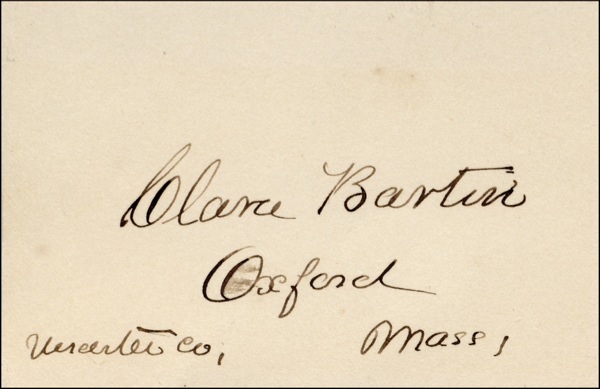 Clara Barton
Oxford
Worcester Co, Mass,